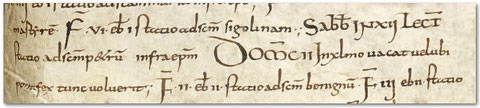 martyrem F. VI. ebd I statio ad scm sigolinam.; Sabb II N XII Lect
statio ad scm petrum infra epm Dom II In xlmo uacat uel ubi
pontifex tunc uoluerit; F. II. ebd II. statio ad scm benignum F III ebd II statio